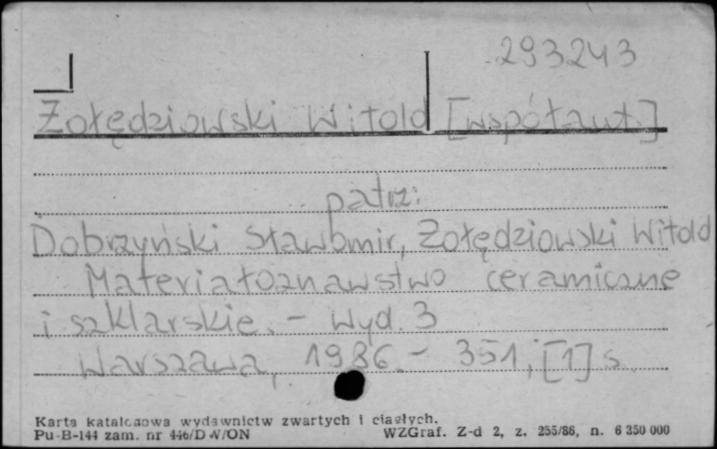 293243
Żołędziowski Witold [współaut.]
patrz:
Dobrzyński Sławomir, Żołędziowski Witold
Materiałoznawstwo ceramiczne
i szklarskie. - Wyd. 3
Warszawa, 1986. - 351, [1] s.
Karta katalogowa wydawnictw zwartych i ciągłych.
Pu-B-144 zam. nr 446/DW/ON WZGraf. Z-d 2, z. 255/86, n. 6 350 000